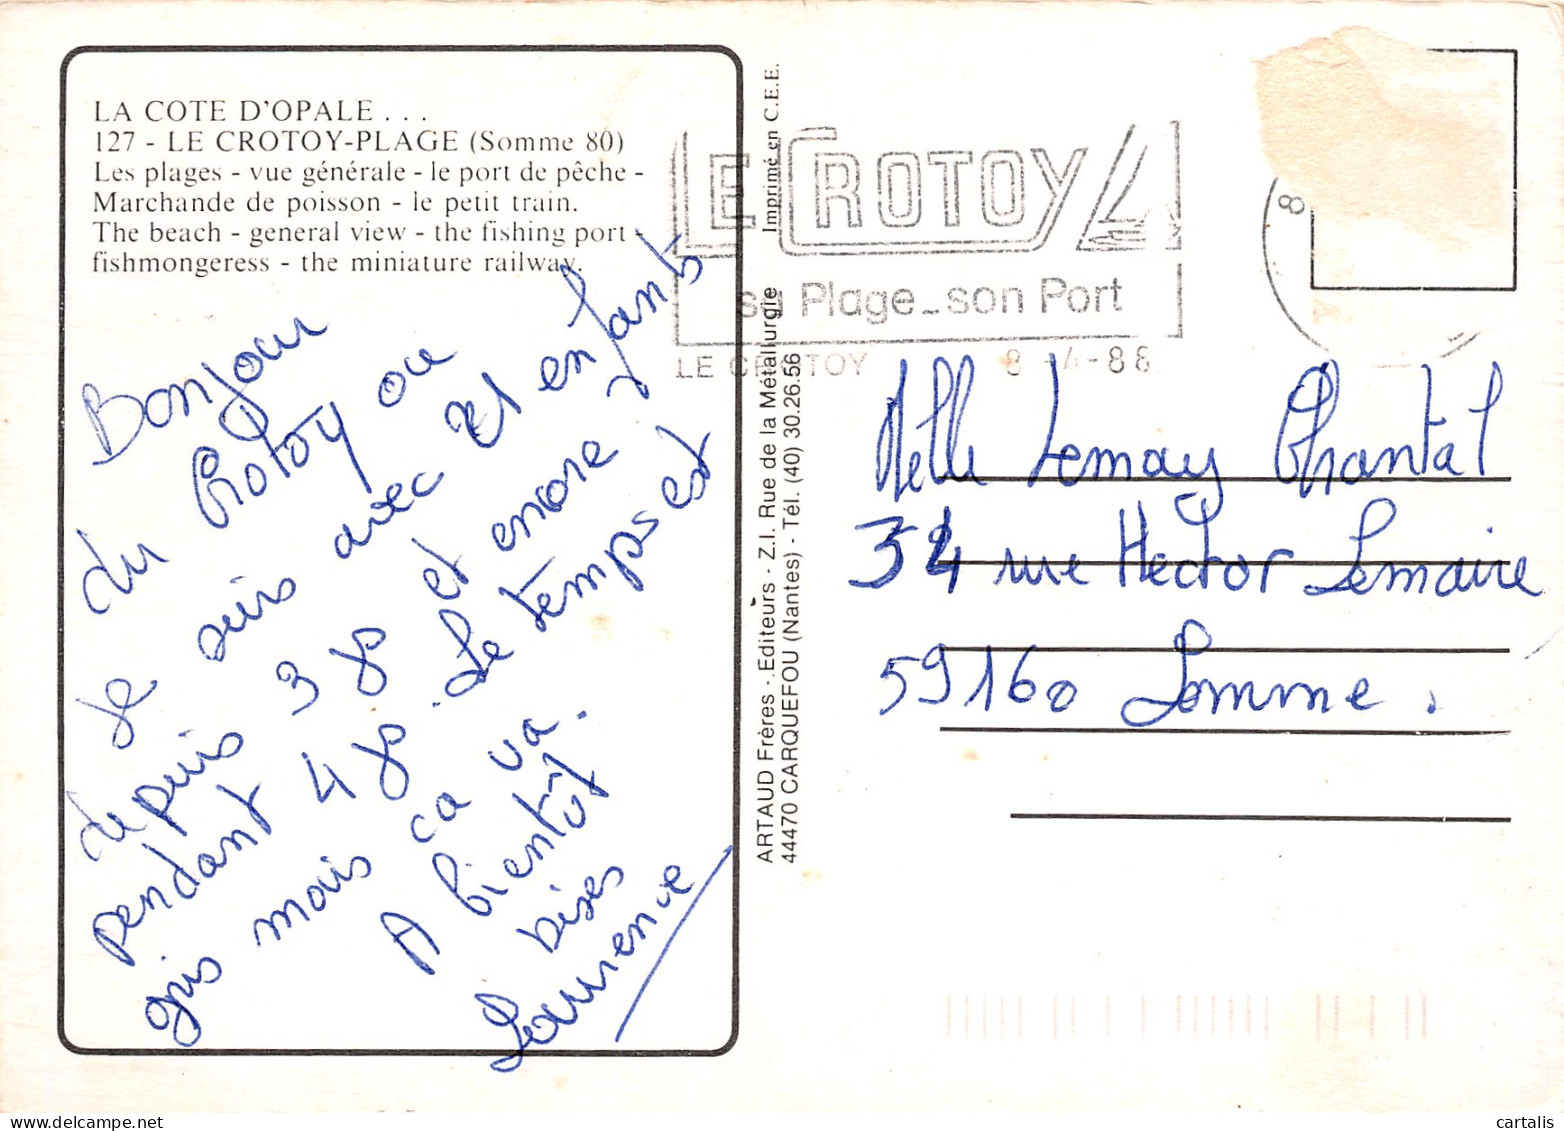 LA COTE D'OPALE . . .
127 - LE CROTOY-PLAGE (Somme 80)
Les plages - vue générale - le port de pêche -
Marchande de poisson - le petit train.
The beach - general view - the fishing port -
fishmongeress - the miniature railway.
Bonjour
du Crotoy ou
je suis avec 21 enfants
depuis 3 js et encore
pendant 4 js. Le temps est
gris mais ca va.
A bientôt
bises
Laurence
Imprimé en C.E.E.
ARTAUD Frères - Editeurs - Z.I. Rue de la Métallurgie
44470 CARQUEFOU (Nantes) - Tél. (40) 30.26.56
LE CROTOY
sa Plage - son Port
LE CROTOY 8-4-88
8
Melle Lemay Chantal
34 rue Hector Lemaire
59160 Lomme.
www.delcampe.net
cartalis